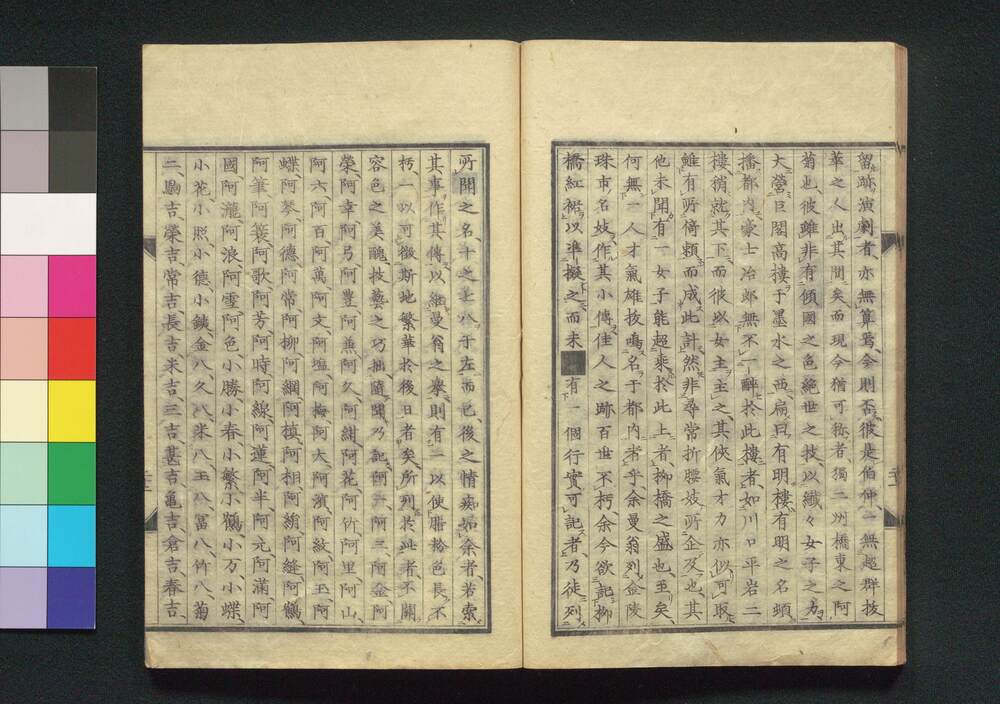 留跡演劇者亦無算焉今則否彼是伯仲一無超群抜
華之人出其間矣而現今猶可称者獨二州橋東之阿
菊也彼雖非有傾國之色絶世之技以纖々女子之力
大營巨閣高樓于墨水之西扁曰有明樓有明之名頭
播都内豪士冶郎無不一醉於此樓者如川口平岩二
樓稍就其下而彼以女主主之其侠氣才力亦似可取
雖有所倚頼而成此計然非尋常折腰妓所企及也其
他未聞有一女子能超乘於此上者柳橋之盛也至矣
何無一人才氣雄抜鳴名于都内者乎余曼翁列金陵
珠市名妓作其小傳佳人之跡百世不朽余今欲記柳
橋紅裙以準擬之而未有一個行實可記者乃徒列
所聞之名十之七八于左而已後之情痴如余者若索
其事作其傳以繼曼翁之擧則有一以使脂粉色長不
朽一以可徴斯地繁華於後日者矣所列於此者不關
容色之美醜技藝之巧拙隨聞乃記阿 阿三阿金阿
榮阿幸阿弓阿豊阿兼阿久阿紺阿花阿竹阿里阿山
阿六阿百阿萬阿文阿塩阿梅阿大阿濱阿紋阿玉阿
蝶阿琴阿德阿常阿柳阿綱阿槙阿相阿絹阿縫阿鶴
阿筆阿蓑阿歌阿芳阿時阿線阿蓮阿半阿元阿滿阿
國阿瀧阿浪阿雪阿色小勝小春小繁小鶴小万小蝶
小花小照小德小鐵金八久八米八玉八冨八竹八菊
二駒吉榮吉常吉長吉米吉三吉甚吉亀吉倉吉春吉